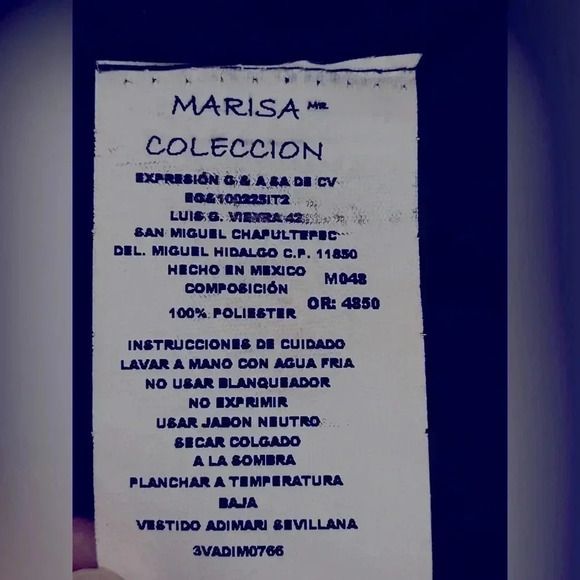 MARISA MR
COLECCION
EXPRESIÓN G & A SA DE CV
EG&100225IT2
LUIS G. VIEYRA 42
SAN MIGUEL CHAPULTEPEC
DEL. MIGUEL HIDALGO C.P. 11850
HECHO EN MEXICO
M048
COMPOSICIÓN
OR: 4850
100% POLIESTER
INSTRUCCIONES DE CUIDADO
LAVAR A MANO CON AGUA FRIA
NO USAR BLANQUEADOR
NO EXPRIMIR
USAR JABON NEUTRO
SECAR COLGADO
A LA SOMBRA
PLANCHAR A TEMPERATURA
BAJA
VESTIDO ADIMARI SEVILLANA
3VADIM0766